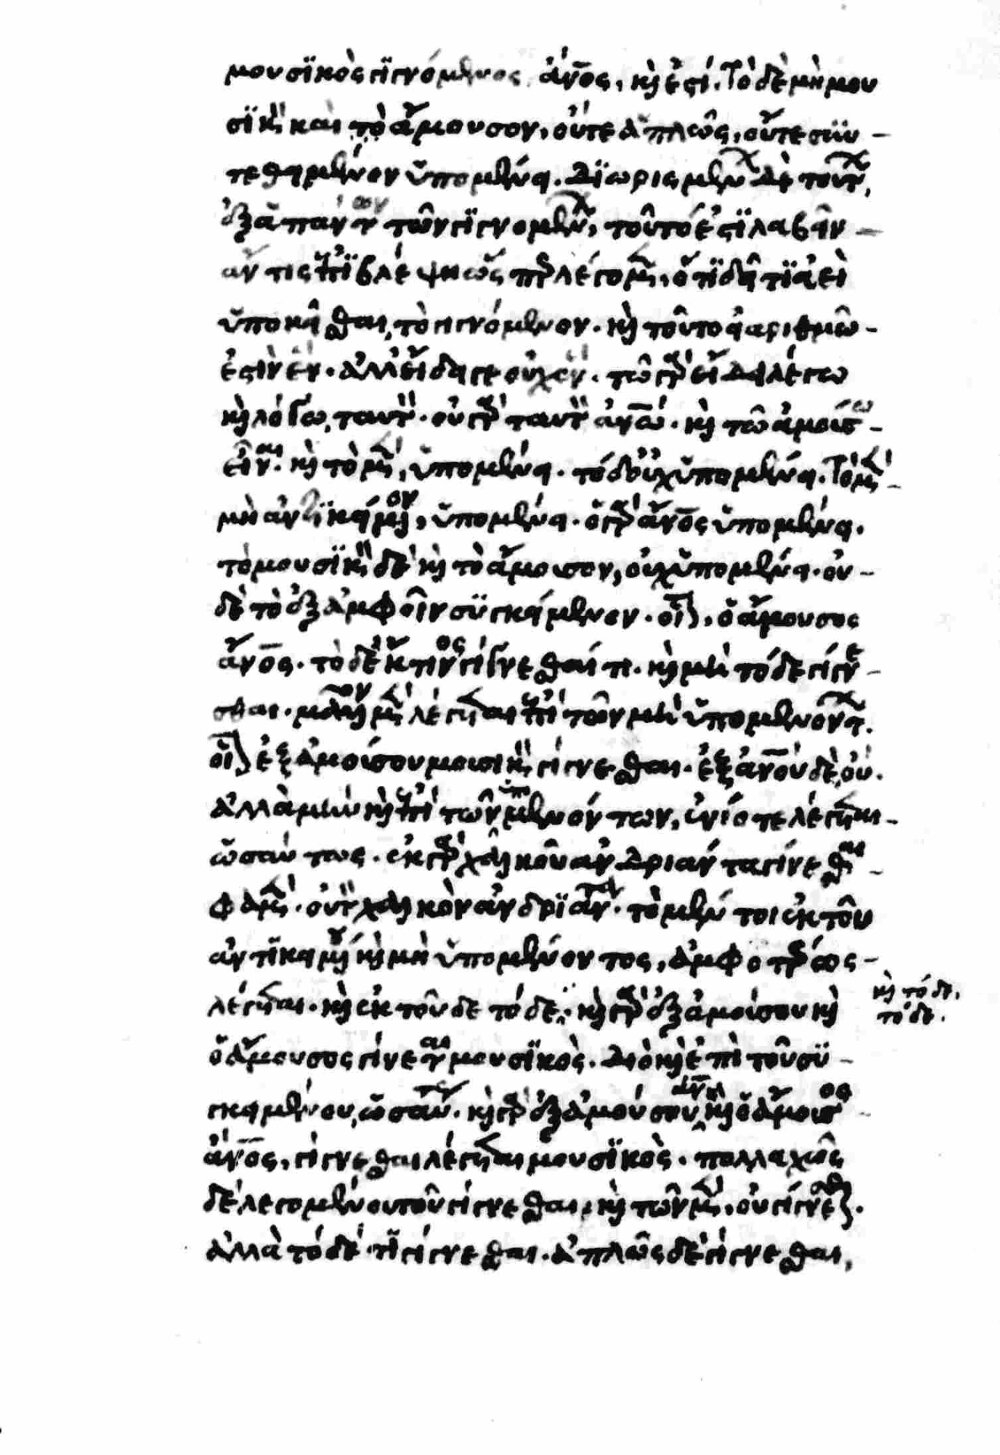 μουσϊκὸς γϊγνόμενος ἄνος, κὴ ἐστί. Τὸ δὲ μὴ μου
σϊκὸν καὶ τὸ ἄμουσον, οὔτε ἁπλῶς, οὔτε συν–
τεθημένον ὑπομένει. Διωρισμένων δὲ τούτων,
ἐξ ἁπάντων τῶν γϊγνομένων, τοῦτό ἐστϊ λαβεῖν
ἄν τις ἐπϊβλέψη ὥσπερ λέγομεν, ὅτϊ δεῖ τϊ ἀεὶ
ὑποκεῖσθαι, τὸ γινόμενον. κὴ τοῦτο ἀριθμῶ–
ἐστὶν ἕν. ἀλλ' εἴδει γε οὐχ ἕν. τῶ γὰρ εἴδει λέγω
κὴ λόγω, ταυτόν. οὐ γὰρ ταυτὸν ἀνω. κὴ τῶ ἀμούσω–
εἶναι. κὴ τὸ μὲν, ὑπομένει. τὸ δ' οὐχ ὑπομένει. Τὸ μὲν–
μὴ ἀντϊκείμενον, ὑπομένει. ὁ γὰρ ἄνος ὑπομένει.
τὸ μουσϊκὸν δὲ κὴ τὸ ἄμουσον, οὐχ ὑπομένει. οὐ–
δὲ τὸ ἐξ ἀμφοῖν συγκείμενον. οἷον, ὁ ἄμουσος
ἄνος. τὸ δὲ ἔκ τινος γίγνεσθαί τι. κὴ μὴ τόδε γίγνε–
σθαι. μᾶλλον μὲν λέγεται ἐπὶ τῶν μὴ ὑπομενόντων.
οἷον ἐξ ἀμούσου μουσικὸν γίγνεσθαι. ἐξ ἀνου δὲ, οὔ.
ἀλλὰ μὴν κὴ ἐπὶ τῶν ὑπομενόντων, ἐνίοτε λέγεται–
ὡσαύτως. ἐκ γὰρ χαλκοῦ ἀνδριάντα γίγνεσθαι–
φαμέν. οὐ τὸν χαλκὸν ἀνδρϊάντα. τὸ μέν τοι ἐκ τοῦ
ἀντϊκειμένου κὴ μὴ ὑπομένοντος, ἀμφοτέρως–
λέγεται. κὴ ἐκ τοῦδε τόδε. κὴ γὰρ ἐξ ἀμούσου κὴ
κὴ τόδε,
τόδε.
ὁ ἄμουσος γίγνεται μουσϊκὸς. διὸ κὴ ἐπὶ τοῦ συ–
γκειμένου, ὡσαύτως. κὴ γὰρ ἐξ ἀμούσου ἀνου κὴ ὁ ἄμουσος–
ἄνος, γίγνεσθαι λέγεται μουσϊκὸς. πολλαχῶς
δὲ λεγομένου τοῦ γίγνεσθαι, κὴ τῶν μὲν, οὐ γίγνεσθαι.
ἀλλὰ τόδέ τϊ γίγνεσθαι. ἁπλῶς δὲ γίγνεσθαι,